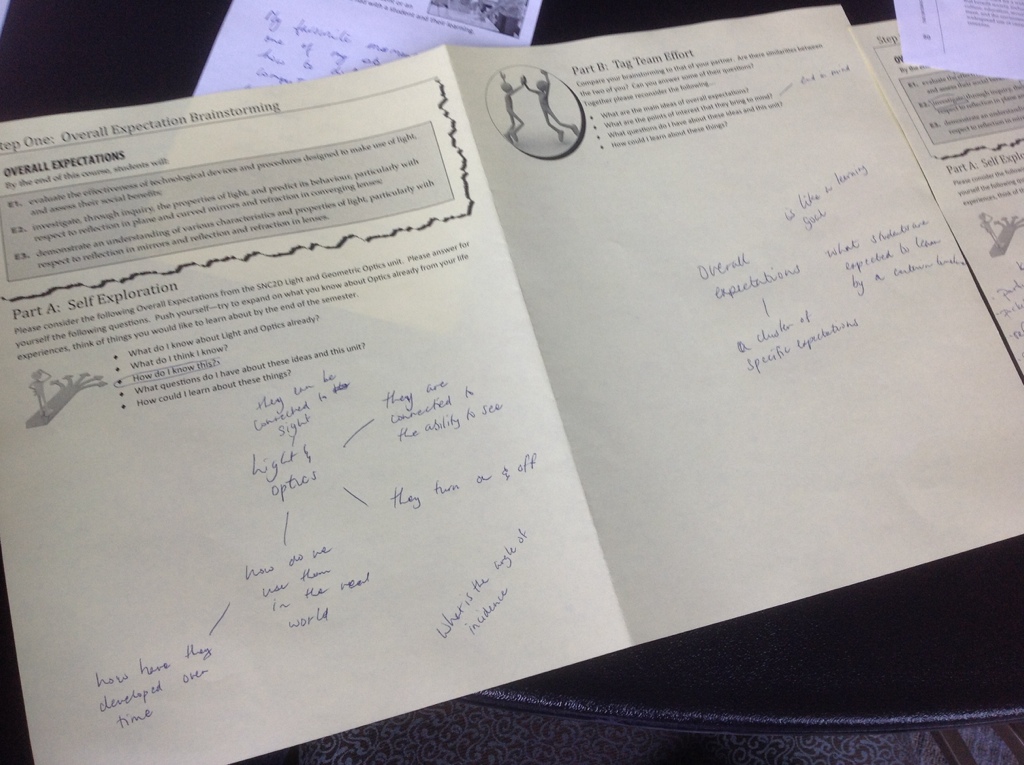 Step One: Overall Expectation Brainstorming
OVERALL EXPECTATIONS
By the end of this course, students will:
E1. evaluate the effectiveness of technological devices and procedures designed to make use of light,
and assess their social benefits;
E2. investigate, through inquiry, the properties of light, and predict its behaviour, particularly with
respect to reflection in plane and curved mirrors and refraction in converging lenses;
E3. demonstrate an understanding of various characteristics and properties of light, particularly with
respect to reflection in mirrors and reflection and refraction in lenses.
Part A: Self Exploration
Please consider the following Overall Expectations from the SNC2D Light and Geometric Optics unit. Please answer for
yourself the following questions. Push yourself—try to expand on what you know about Optics already from your life
experiences, think of things you would like to learn about by the end of the semester.
• What do I know about Light and Optics already?
• What do I think I know?
• How do I know this?
• What questions do I have about these ideas and this unit?
• How could I learn about these things?
they can be
connected to
sight
they are
connected to
the ability to see
Light &
optics
they turn on & off
how do we
use them
in the real
world
how have they
developed over
time
What is the angle of
incidence
Part B: Tag Team Effort
Compare your brainstorming to that of your partner. Are there similarities between
the two of you? Can you answer some of their questions?
Together please reconsider the following...
• What are the main ideas of overall expectations?
• What are the points of interest that they bring to mind?
• What questions do I have about these ideas and this unit?
• How could I learn about these things?
end in mind
is like a learning
goal
Overall
expectations
what students are
expected to learn
by a certain
a cluster of
specific expectations
My favourite
one of my
Step
E1. evaluate the
and assess their
E2.
respect to reflection in
E3. demonstrate an
respect to reflection in
Part A: Self Expl
Please consider the
yourself the following
experiences, think of